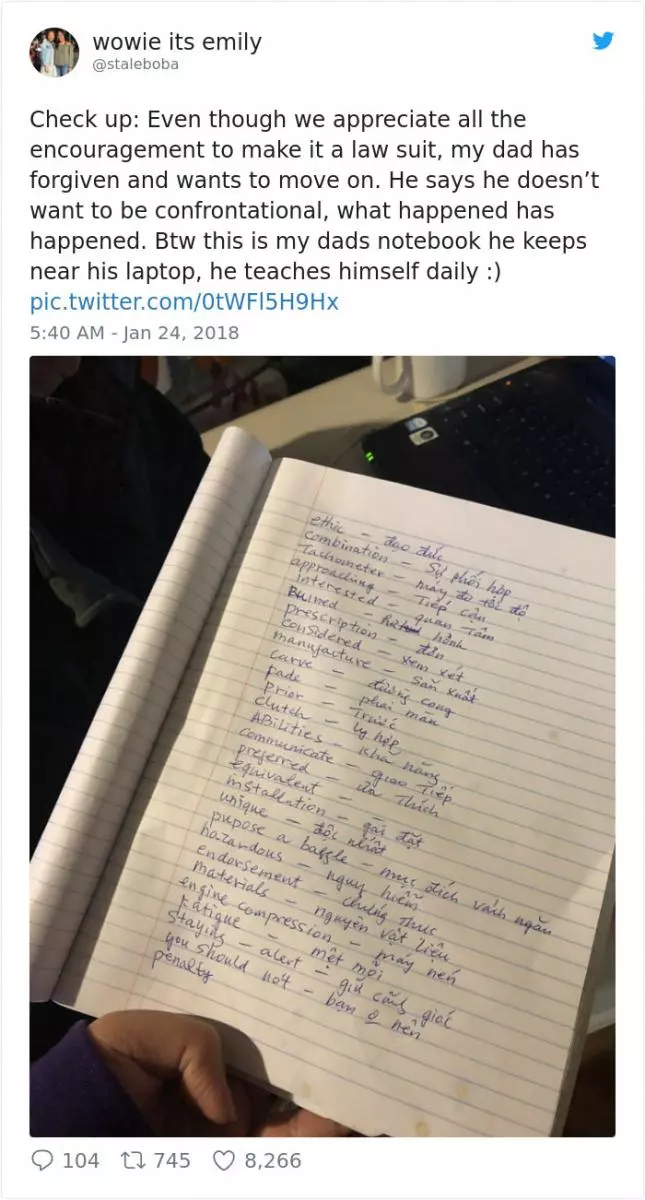 wowie its emily
@staleboba
Check up: Even though we appreciate all the
encouragement to make it a law suit, my dad has
forgiven and wants to move on. He says he doesn’t
want to be confrontational, what happened has
happened. Btw this is my dads notebook he keeps
near his laptop, he teaches himself daily :)
pic.twitter.com/0tWFl5H9Hx
5:40 AM - Jan 24, 2018
ethic – đạo đức
combination – Sự phối hợp
Tachometer – máy đo tốc độ
approaching – Tiếp cận
interested – quan Tâm
Buined – hỏnh
prescription – đơn
considered – xem xét
manufacture – Sản xuất
carve – đường cong
fade – phai màu
prior – Trước
clutch – ly hợp
ABilities – khả năng
communicate – giao Tiếp
preferred – ưa Thích
equivalent –
installation – gài đặt
unique – độc nhất
pupose a baffle – mục đích vách ngăn
hazardous – nguy hiểm
endorsement – chứng Thực
materials – nguyên vật liệu
engine compression – máy nén
fatigue – mệt mỏi
Staying – alert – giữ cảng giác
you should not – bạn o nên
penalty
104 745 8,266